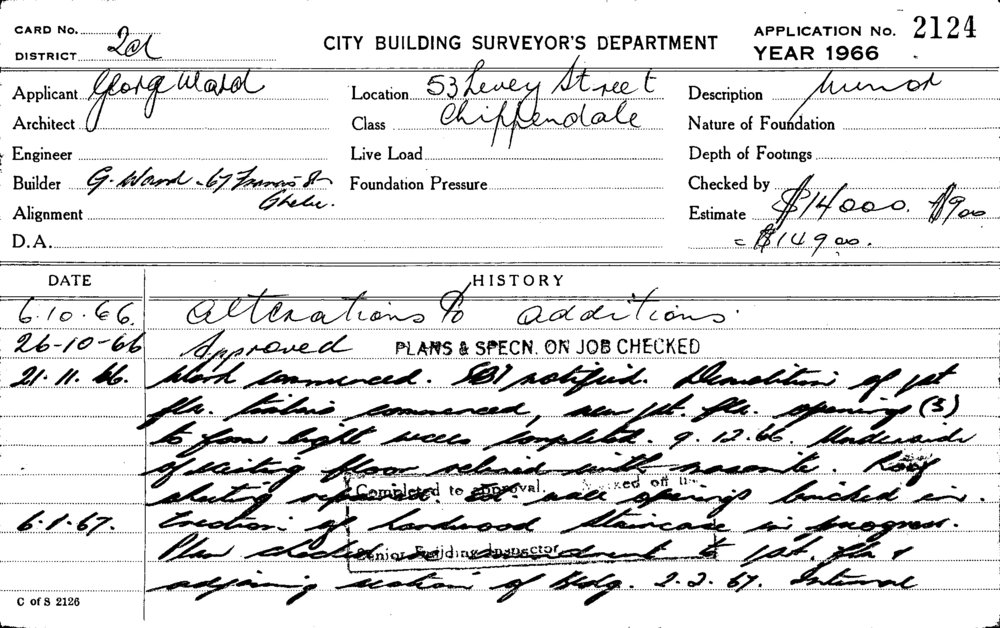 CARD No. 2a
DISTRICT
CITY BUILDING SURVEYOR'S DEPARTMENT
APPLICATION No. 2124
YEAR 1966
Applicant George Ward
Location 53 Levey Street
Description Minor
Architect
Class Chippendale
Nature of Foundation
Engineer
Live Load
Depth of Footings
Builder G. Ward - 67 Francis St
Glebe.
Foundation Pressure
Checked by
Alignment
Estimate $14000. $900
D.A.
= $14900.
DATE
HISTORY
6.10.66. Alterations to additions.
26-10-66 Approved PLANS & SPECN. ON JOB CHECKED
21.11.66. Work commenced. SBI notified. Demolition of 1st
flr. timbers commenced, new 1st. flr. openings (3)
to form light wells completed. 9.12.66. Underside
of existing floor relined with masonite. Roof
sheeting wall openings bricked in.
Completed to approval.
6.1.67. Erection of hardwood staircase in progress.
Plan amendment to 1st. flr &
Senior Building Inspector
adjoining section of bldg. 2.2.67. Internal
C of S 2126